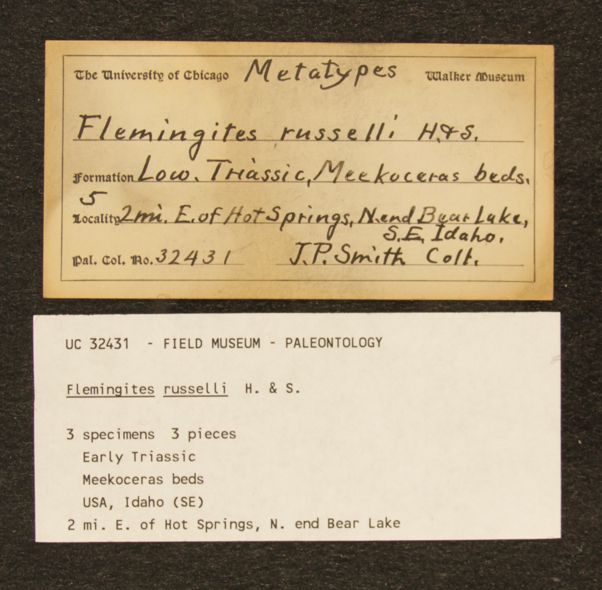 The University of Chicago Metatypes Walker Museum
Flemingites russelli H.&S.
Formation Low. Triassic, Meekoceras beds.
5
Locality 2mi. E. of Hot Springs, N. end Bear Lake,
S.E. Idaho.
Pal. Col. No. 32431 J.P. Smith Coll.
UC 32431 - FIELD MUSEUM - PALEONTOLOGY
Flemingites russelli H. & S.
3 specimens 3 pieces
Early Triassic
Meekoceras beds
USA, Idaho (SE)
2 mi. E. of Hot Springs, N. end Bear Lake